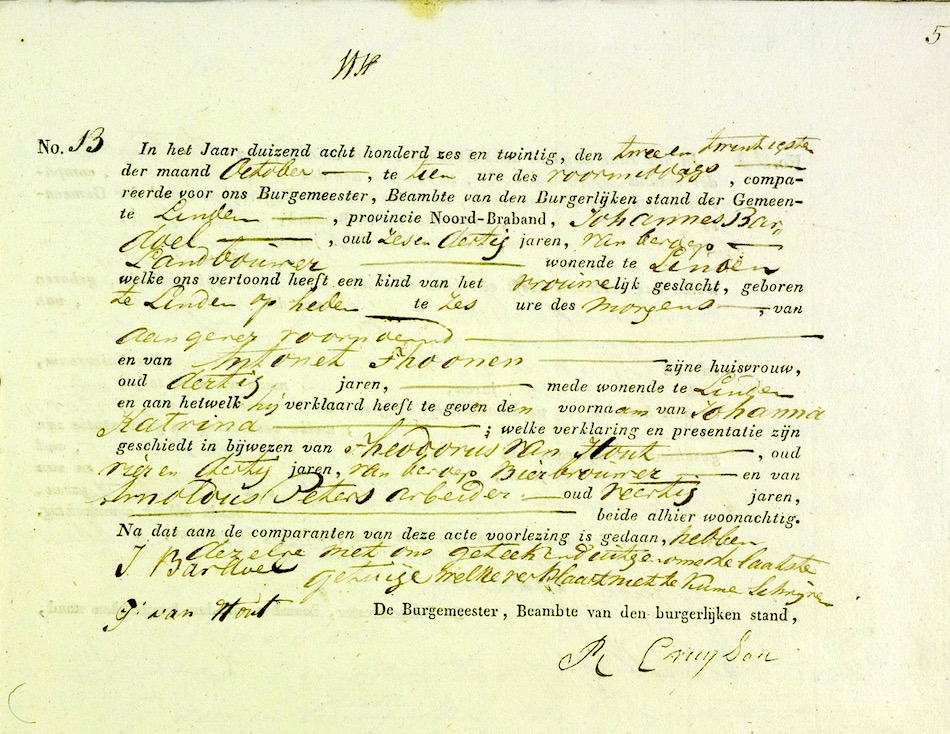 5
No. 13 In het Jaar duizend acht honderd zes en twintig, den twee en twentigste
der maand October, te tien ure des voormiddags, compa-
reerde voor ons Burgemeester, Beambte van den Burgerlijken stand der Gemeen-
te Linden, provincie Noord-Braband, Johannes Bar
doel, oud zes en dertig jaren, van beroep
Landbouwer wonende te Linden
welke ons vertoond heeft een kind van het vrouwelijk geslacht, geboren
te Linden op heden te zes ure des morgens, van
aangever voornoemd
en van Antonet Thoonen zijne huisvrouw,
oud dertig jaren, mede wonende te Linden
en aan hetwelk hij verklaard heeft te geven den voornaam van Johanna
Katrina ; welke verklaring en presentatie zijn
geschiedt in bijwezen van Theodorus van Hout, oud
vier en dertig jaren, van beroep Bierbrouwer en van
Arnoldus Peters arbeider oud veertig jaren,
beide alhier woonachtig.
Na dat aan de comparanten van deze acte voorlezing is gedaan, hebben
dezelve met ons geteekend uitgenomde laatste
J. Bardoel getuige welke verklaart niet te kunne Schrijven
van Hout De Burgemeester, Beambte van den burgerlijken stand,